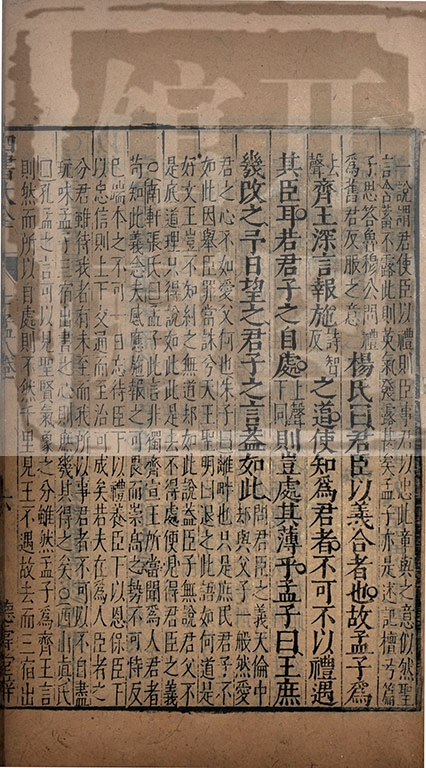 一說謂君使臣以禮則臣事君以忠此章與之意似然聖
言含蓄不露此則英氣發露甚矣孟子亦是述記檀弓篇
子思答魯穆公問禮
爲舊君反服之意
楊氏曰君臣以義合者也故孟子爲
去聲齊王深言報施詩智反之道使知爲君者不可不以禮遇
其臣耳若君子之自處上聲下同則豈處其薄乎孟子曰王庶
幾改之予日望之君子之言蓋如此問君臣之義天倫中
却與父子一般然愛
君之心不如愛父何也朱子曰離畔也只是庶民君子不
如此因舉臣罪當誅兮天王聖明曰退之此語如何道是
好文王豈不知紂之無道却如此說蓋臣子無說君父不
是底道理只得說如此此是去不得處便見得君臣之義
○南軒張氏曰孟子此言非獨齊宣王所當聞爲人君者
苟知此義念夫感應施報之可畏而崇高之勢不可恃反
已端本之不可一日忘待臣下以禮養臣下以恩保臣下
以忠信則上下交通而至治可成矣若夫在爲人臣者之
分君雖待我者有未至而我所以事君者不可以不自盡
玩味孟子三宿出晝之心則庶幾其得之矣○西山眞氏
曰孔孟之言可以見聖賢氣象之分雖然孟子爲齊王言
則然而所以自處則不然千里見王不遇故去而三宿出
四書大全
德壽堂梓